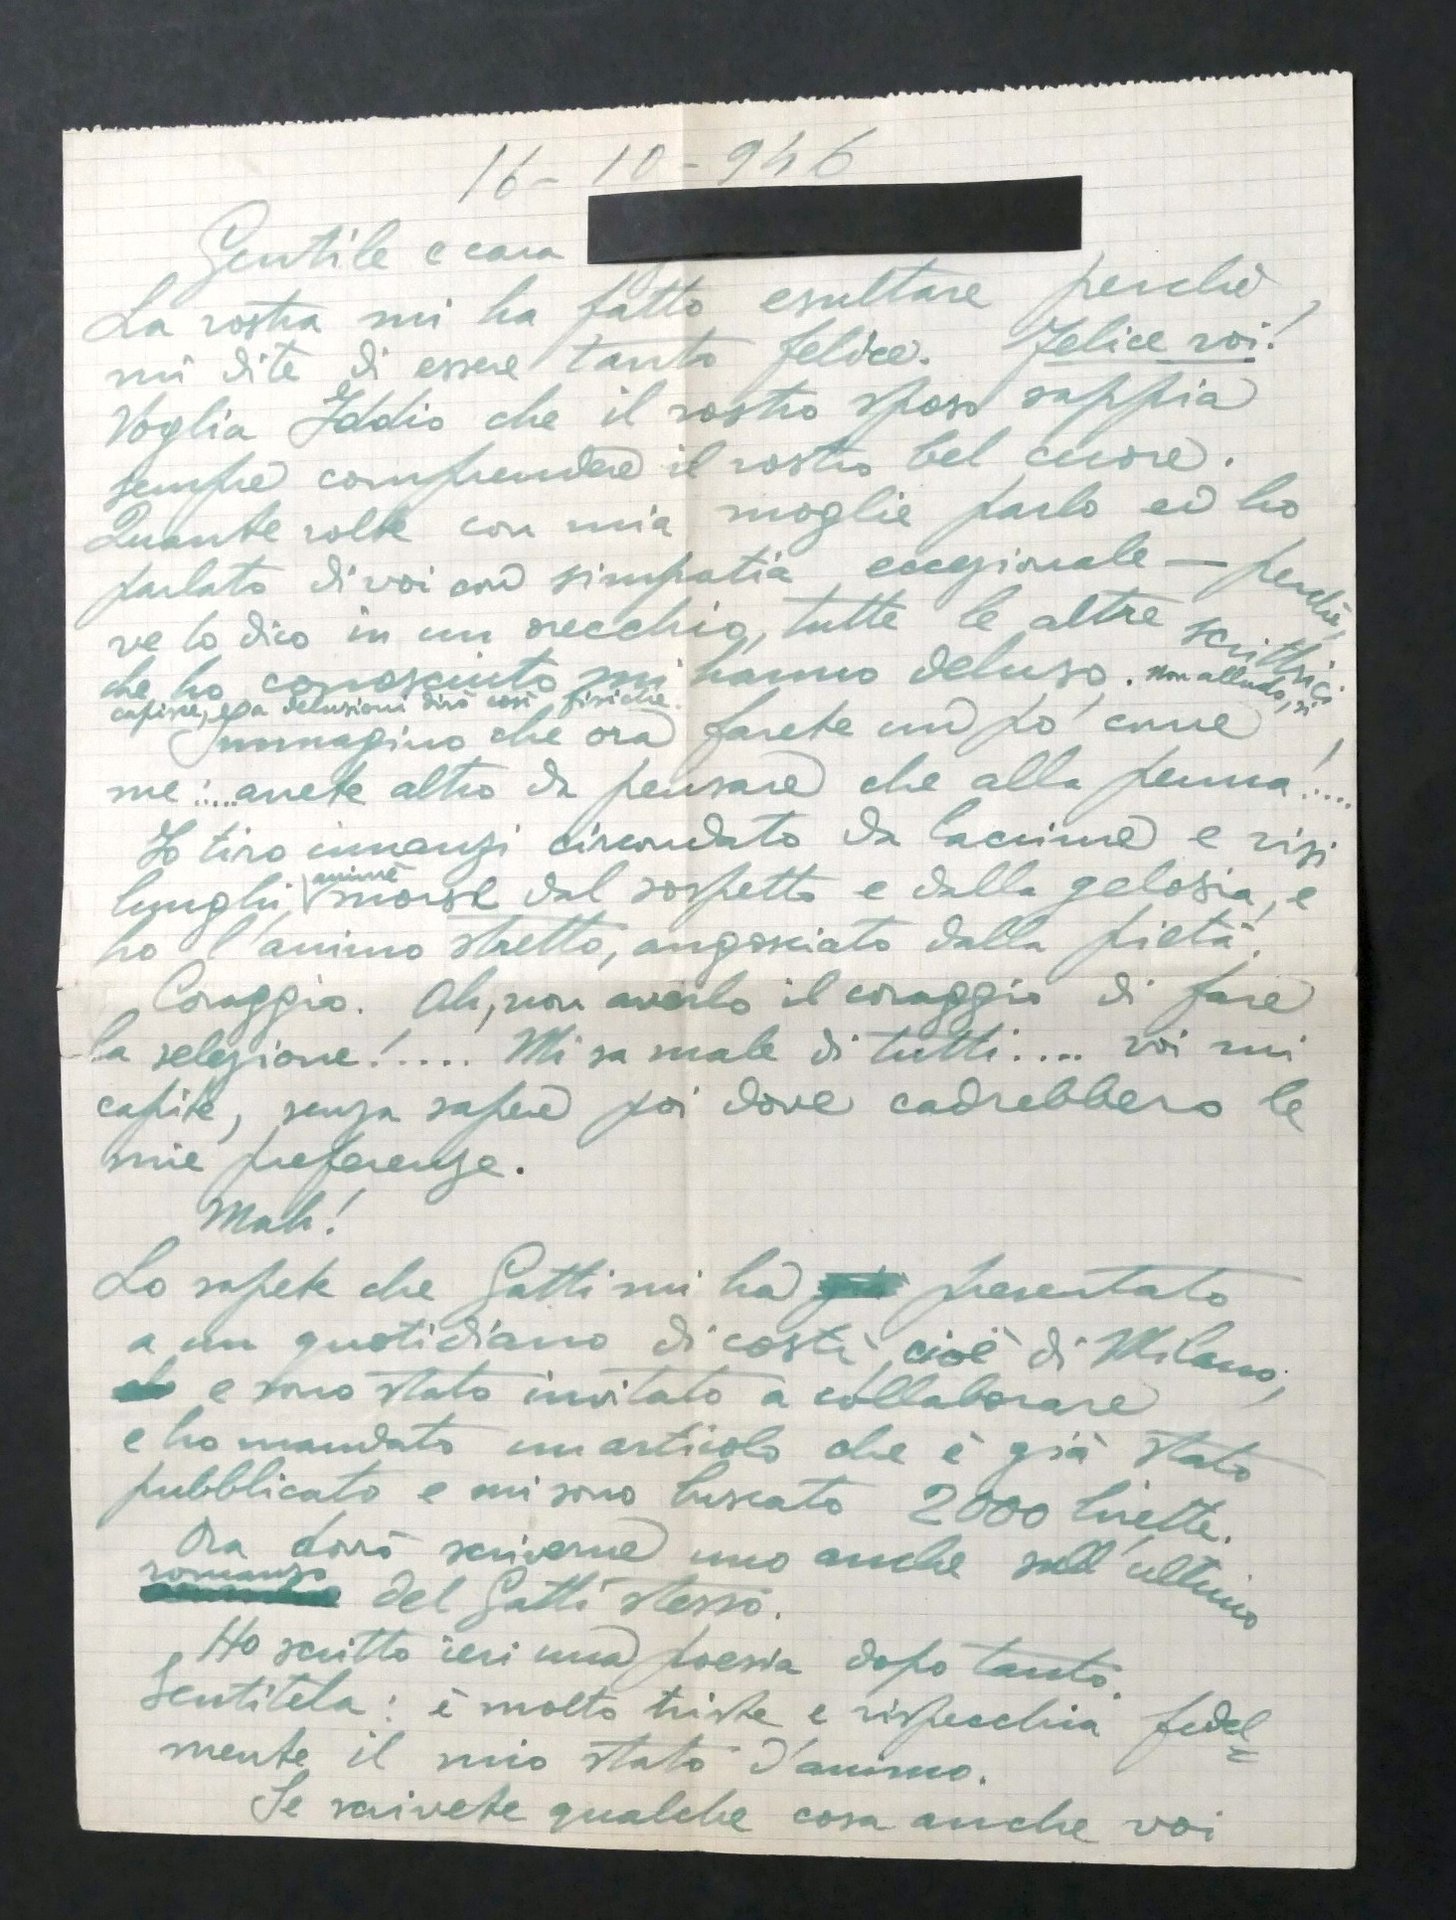 16-10-946
Gentile e cara
La vostra mi ha fatto esultare perchè,
mi dite di essere tanto felice. Felice voi!
Voglia Iddio che il vostro sposo sappia
sempre comprendere il vostro bel cuore.
Quante volte con mia moglie parlo ed ho
parlato di voi con simpatia eccezionale — perchè,
ve lo dico in un orecchio, tutte le altre scrittrici
che ho conosciuto mi hanno deluso. Non alludo, si
capisce, a delusioni dirò così fisiche.
Immagino che ora farete un po' come
me:.... avete altro da pensare che alla penna!....
Io tiro innanzi circondato da lacrime e visi
lunghi anime morse dal sospetto e dalla gelosia, e
ho l'animo stretto, angosciato dalla pietà.
Coraggio. Oh, non averlo il coraggio di fare
la selezione!.... Mi sa male di tutti.... voi mi
capite, senza sapere poi dove cadrebbero le
mie preferenze.
Mah!
Lo sapete che Gatti mi ha presentato
a un quotidiano di costì, cioè di Milano;
e sono stato invitato a collaborare
e ho mandato un articolo che è già stato
pubblicato e mi sono buscato 2000 lirette.
Ora dovrò scriverne uno anche sull'ultimo
romanzo del Gatti stesso.
Ho scritto ieri una poesia dopo tanto.
Sentitela: è molto triste e rispecchia fedel=
mente il mio stato d'animo.
Se scrivete qualche cosa anche voi